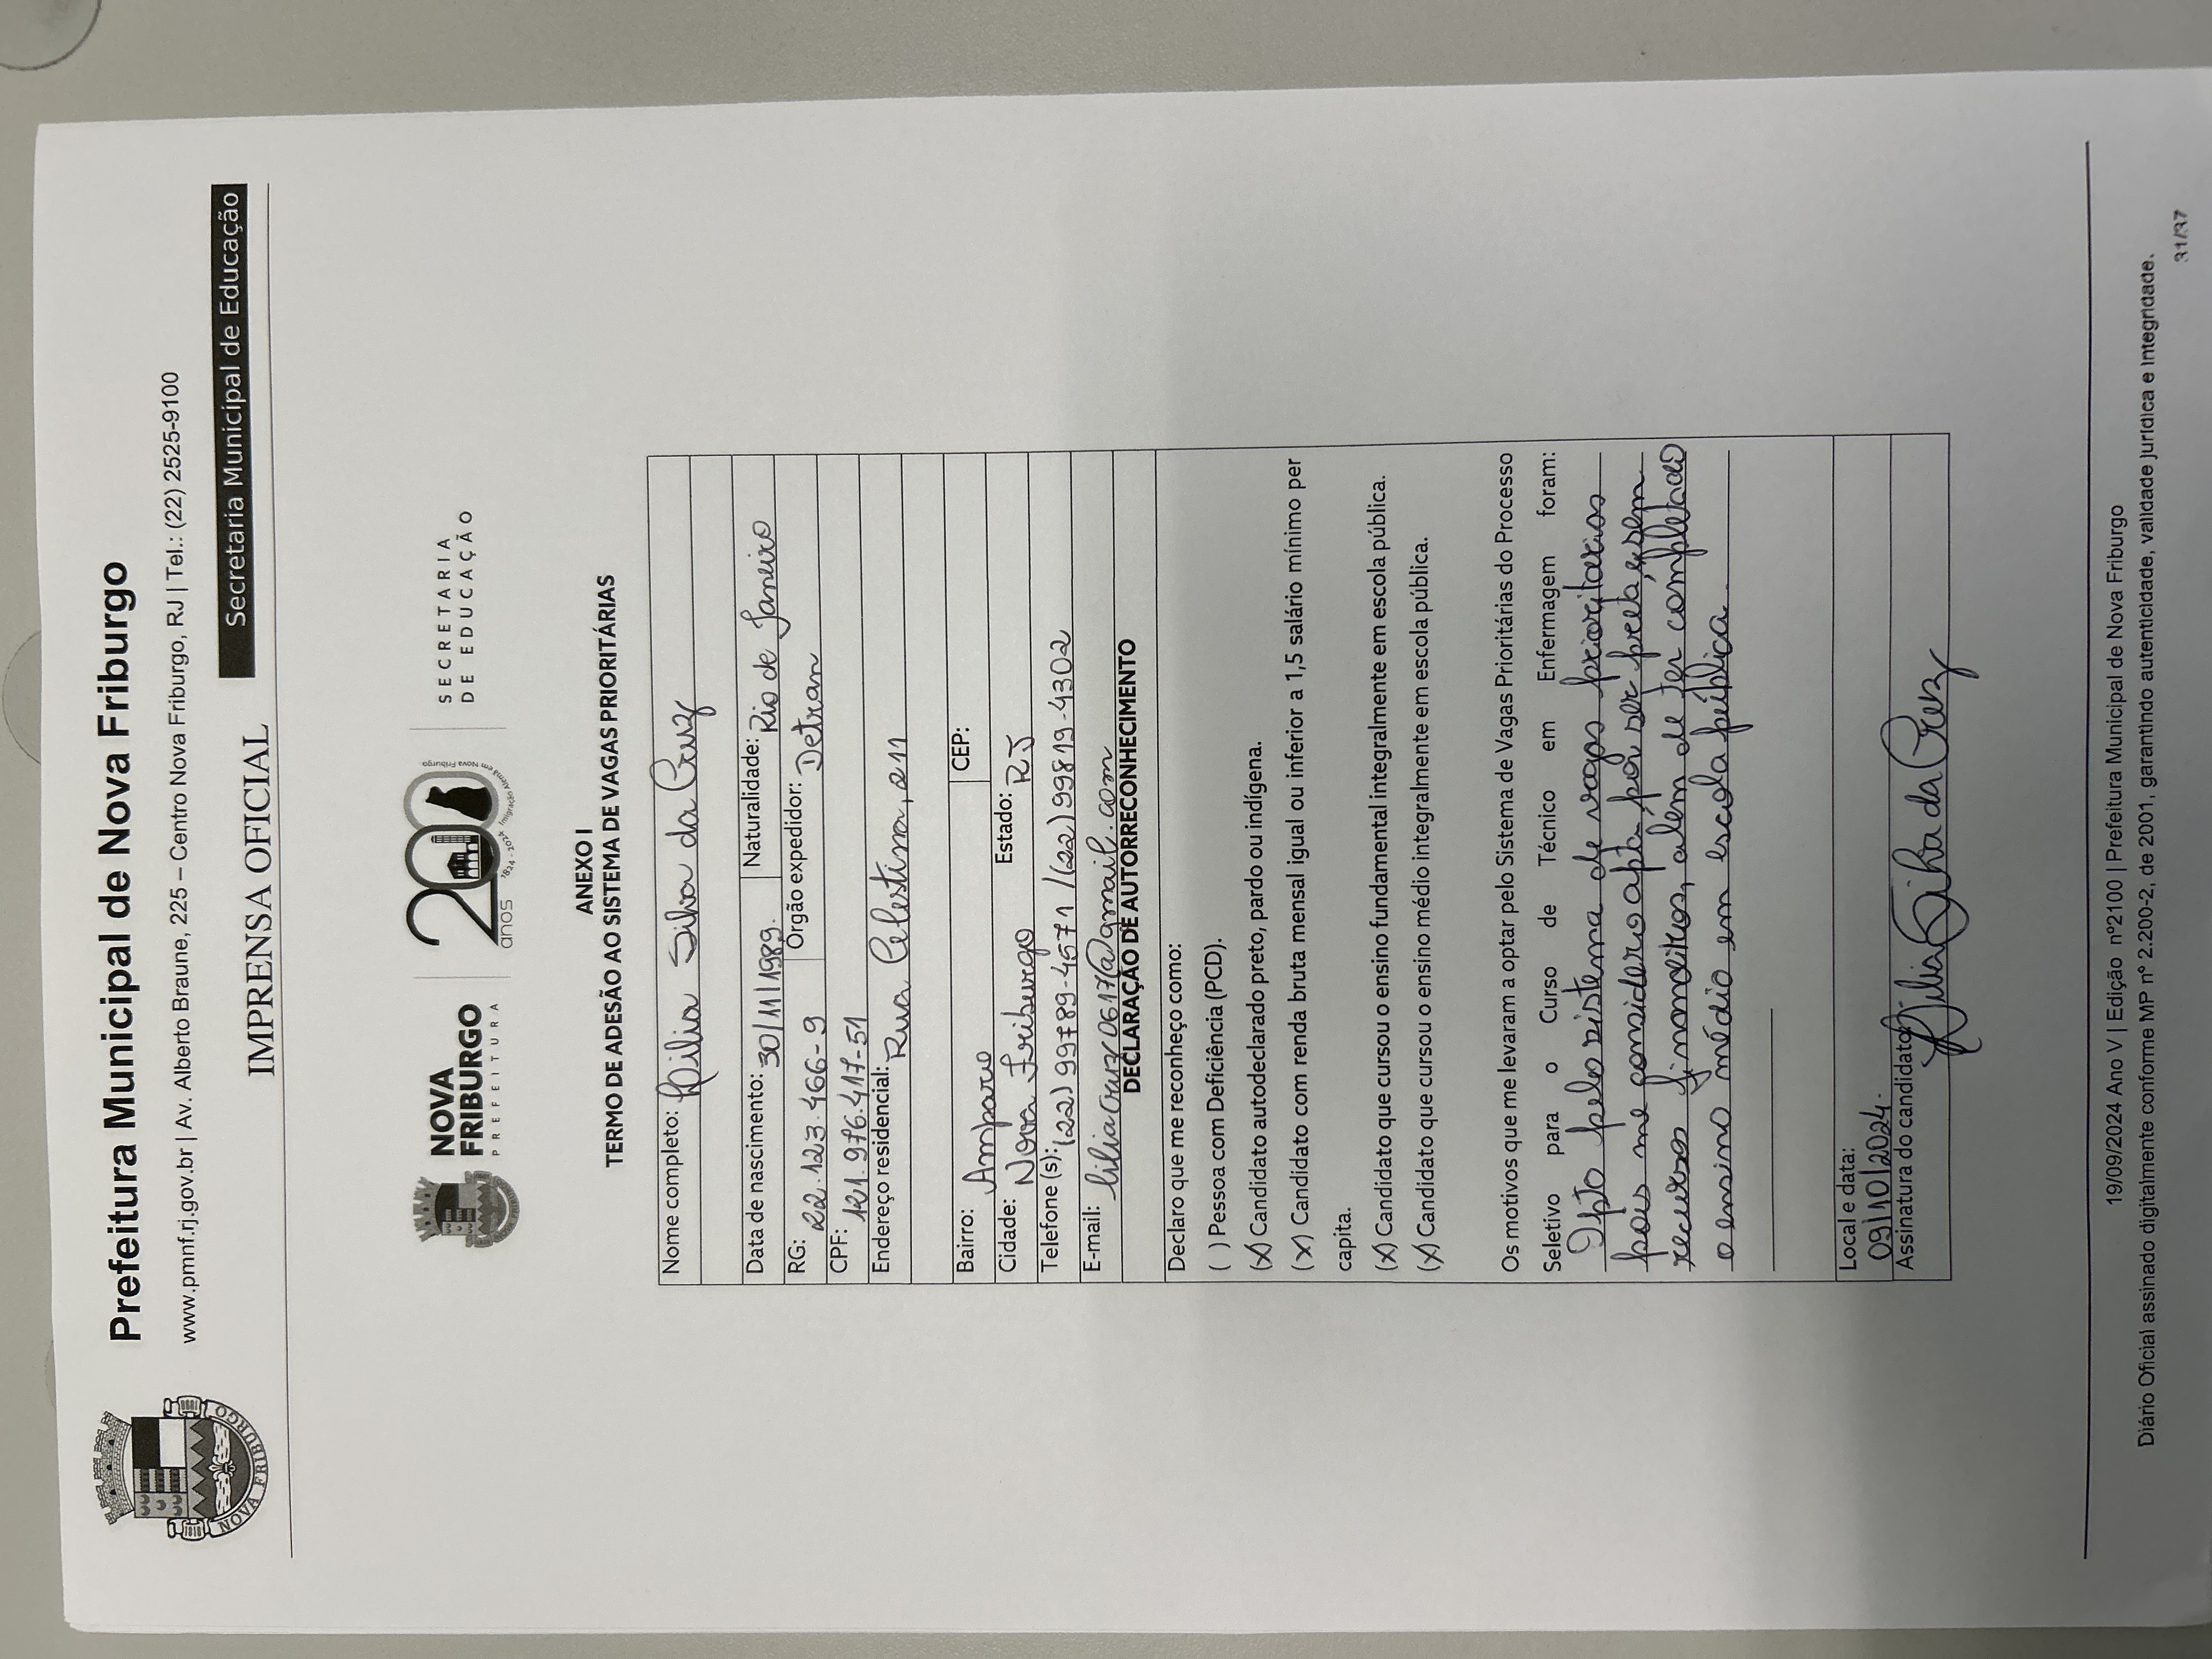 Prefeitura Municipal de Nova Friburgo
www.pmnf.rj.gov.br | Av. Alberto Braune, 225 – Centro Nova Friburgo, RJ | Tel.: (22) 2525-9100
Secretaria Municipal de Educação
IMPRENSA OFICIAL
NOVA FRIBURGO
NOVA
FRIBURGO
PREFEITURA
200
anos
1824 - 2024
Imigração Alemã em Nova Friburgo
SECRETARIA
DE EDUCAÇÃO
ANEXO I
TERMO DE ADESÃO AO SISTEMA DE VAGAS PRIORITÁRIAS
Nome completo: Lilia Silva da Cruz
Data de nascimento: 30/11/1989. Naturalidade: Rio de Janeiro
RG: 22.123.466-9 Órgão expedidor: Detran
CPF: 121.976.417-51
Endereço residencial: Rua Celestina, 211
Bairro: Amparo CEP:
Cidade: Nova Friburgo Estado: RJ
Telefone (s): (22) 99789-4571 / (22) 99819-4302
E-mail: liliacruz0617@gmail.com
DECLARAÇÃO DE AUTORRECONHECIMENTO
Declaro que me reconheço como:
( ) Pessoa com Deficiência (PCD).
(X) Candidato autodeclarado preto, pardo ou indígena.
(X) Candidato com renda bruta mensal igual ou inferior a 1,5 salário mínimo per
capita.
(X) Candidato que cursou o ensino fundamental integralmente em escola pública.
(X) Candidato que cursou o ensino médio integralmente em escola pública.
Os motivos que me levaram a optar pelo Sistema de Vagas Prioritárias do Processo
Seletivo para o Curso de Técnico em Enfermagem foram:
Opto pelo sistema de vagas prioritarias
pois me considero apta por ser preta, e sem
recursos financeiros, além de ter completado
o ensino médio em escola pública.
Local e data:
09/10/2024.
Assinatura do candidato: Lilia Silva da Cruz
19/09/2024 Ano V | Edição nº2100 | Prefeitura Municipal de Nova Friburgo
Diário Oficial assinado digitalmente conforme MP nº 2.200-2, de 2001, garantindo autenticidade, validade jurídica e integridade.
31/37